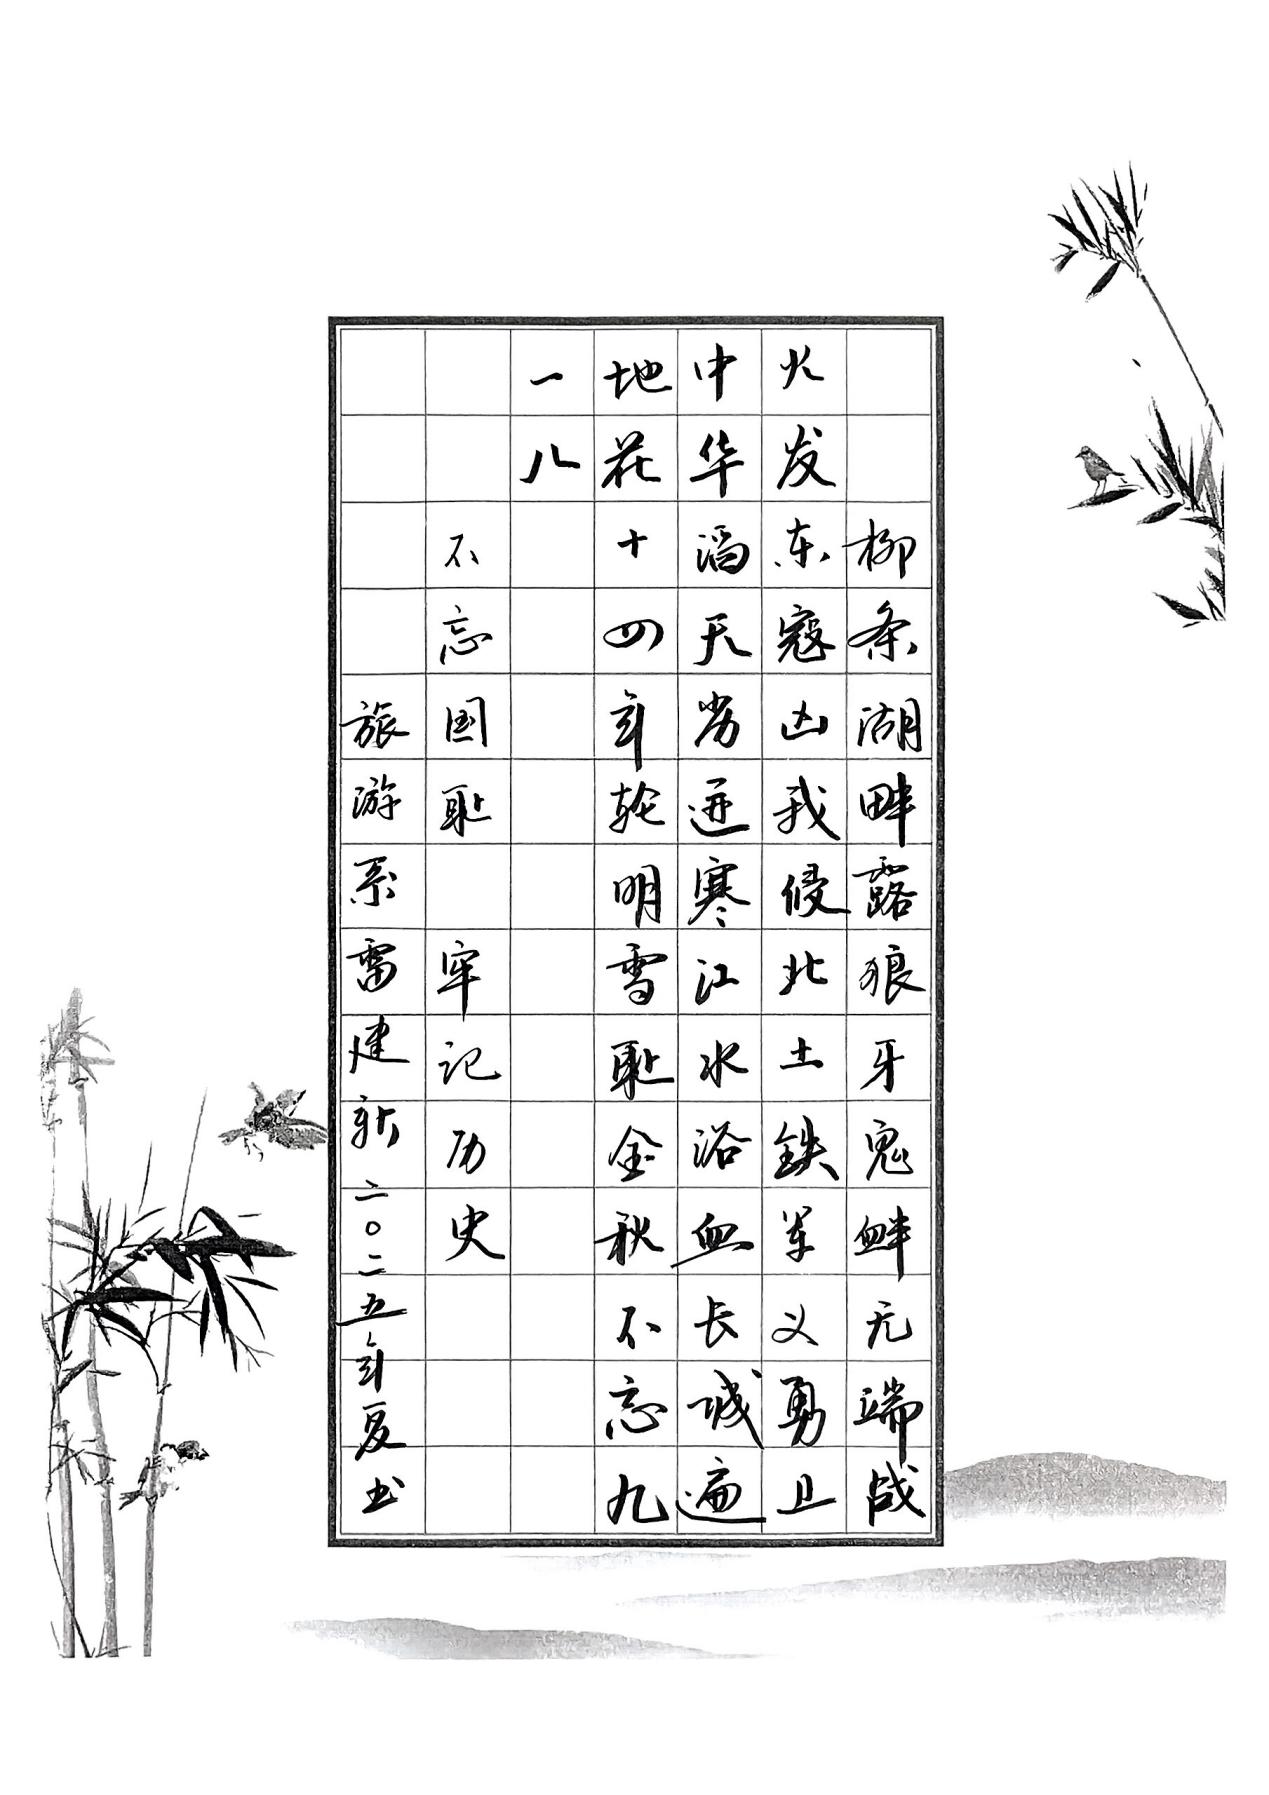 柳条湖畔露狼牙鬼衅无端战
火发东寇凶我侵北土铁军义勇卫
中华滔天迸寒江水浴血长城遍
地花十四年轮明雪耻金秋不忘九
一八
不忘国耻 牢记历史
旅游系雷建新二〇二五年夏书